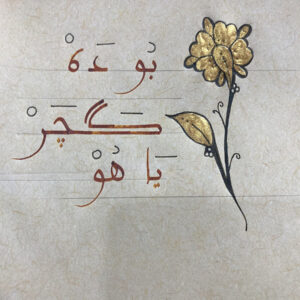 بُو دَهْ
گَچَرْ
يَا هُوْ